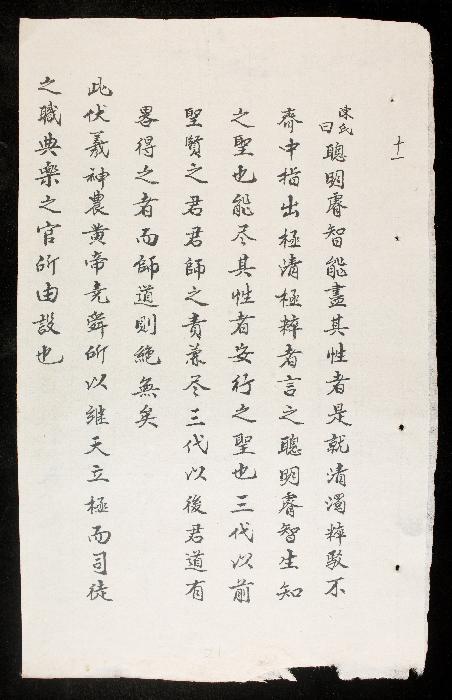 十一
陳氏曰聰明睿智能盡其性者是就清濁粹駁不
齊中指出極清極粹者言之聰明睿智生知
之聖也能尽其性者安行之聖也三代以前
聖賢之君君師之責兼尽三代以後君道有
畧得之者而師道則絶無矣
此伏羲神農黄帝堯舜所以継天立極而司徒
之職典樂之官所由設也